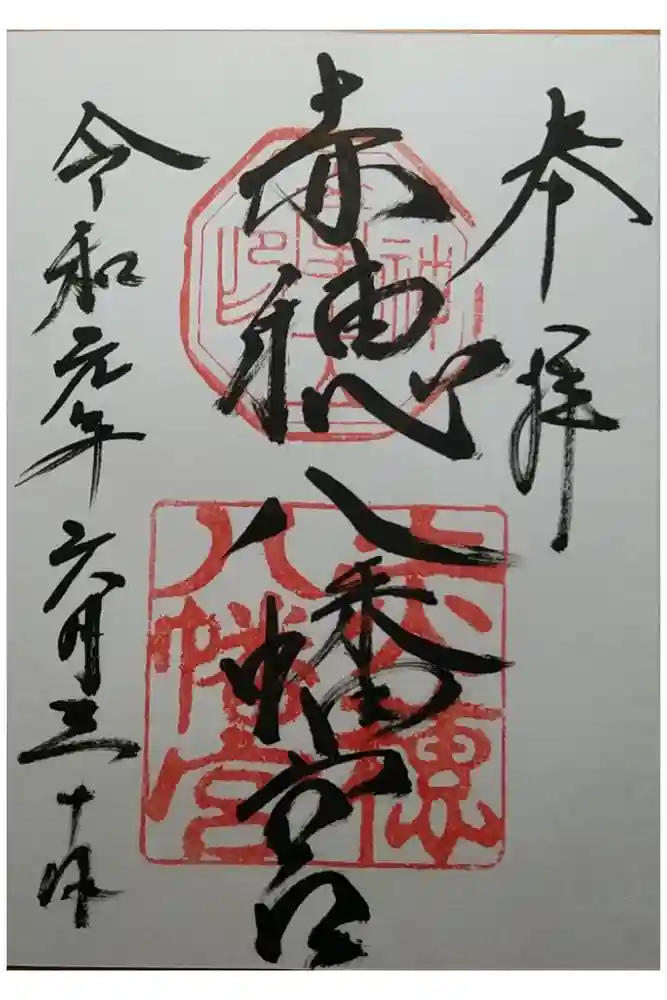 奉拝
赤穂八幡宮
令和元年六月三十日
赤穂八幡宮